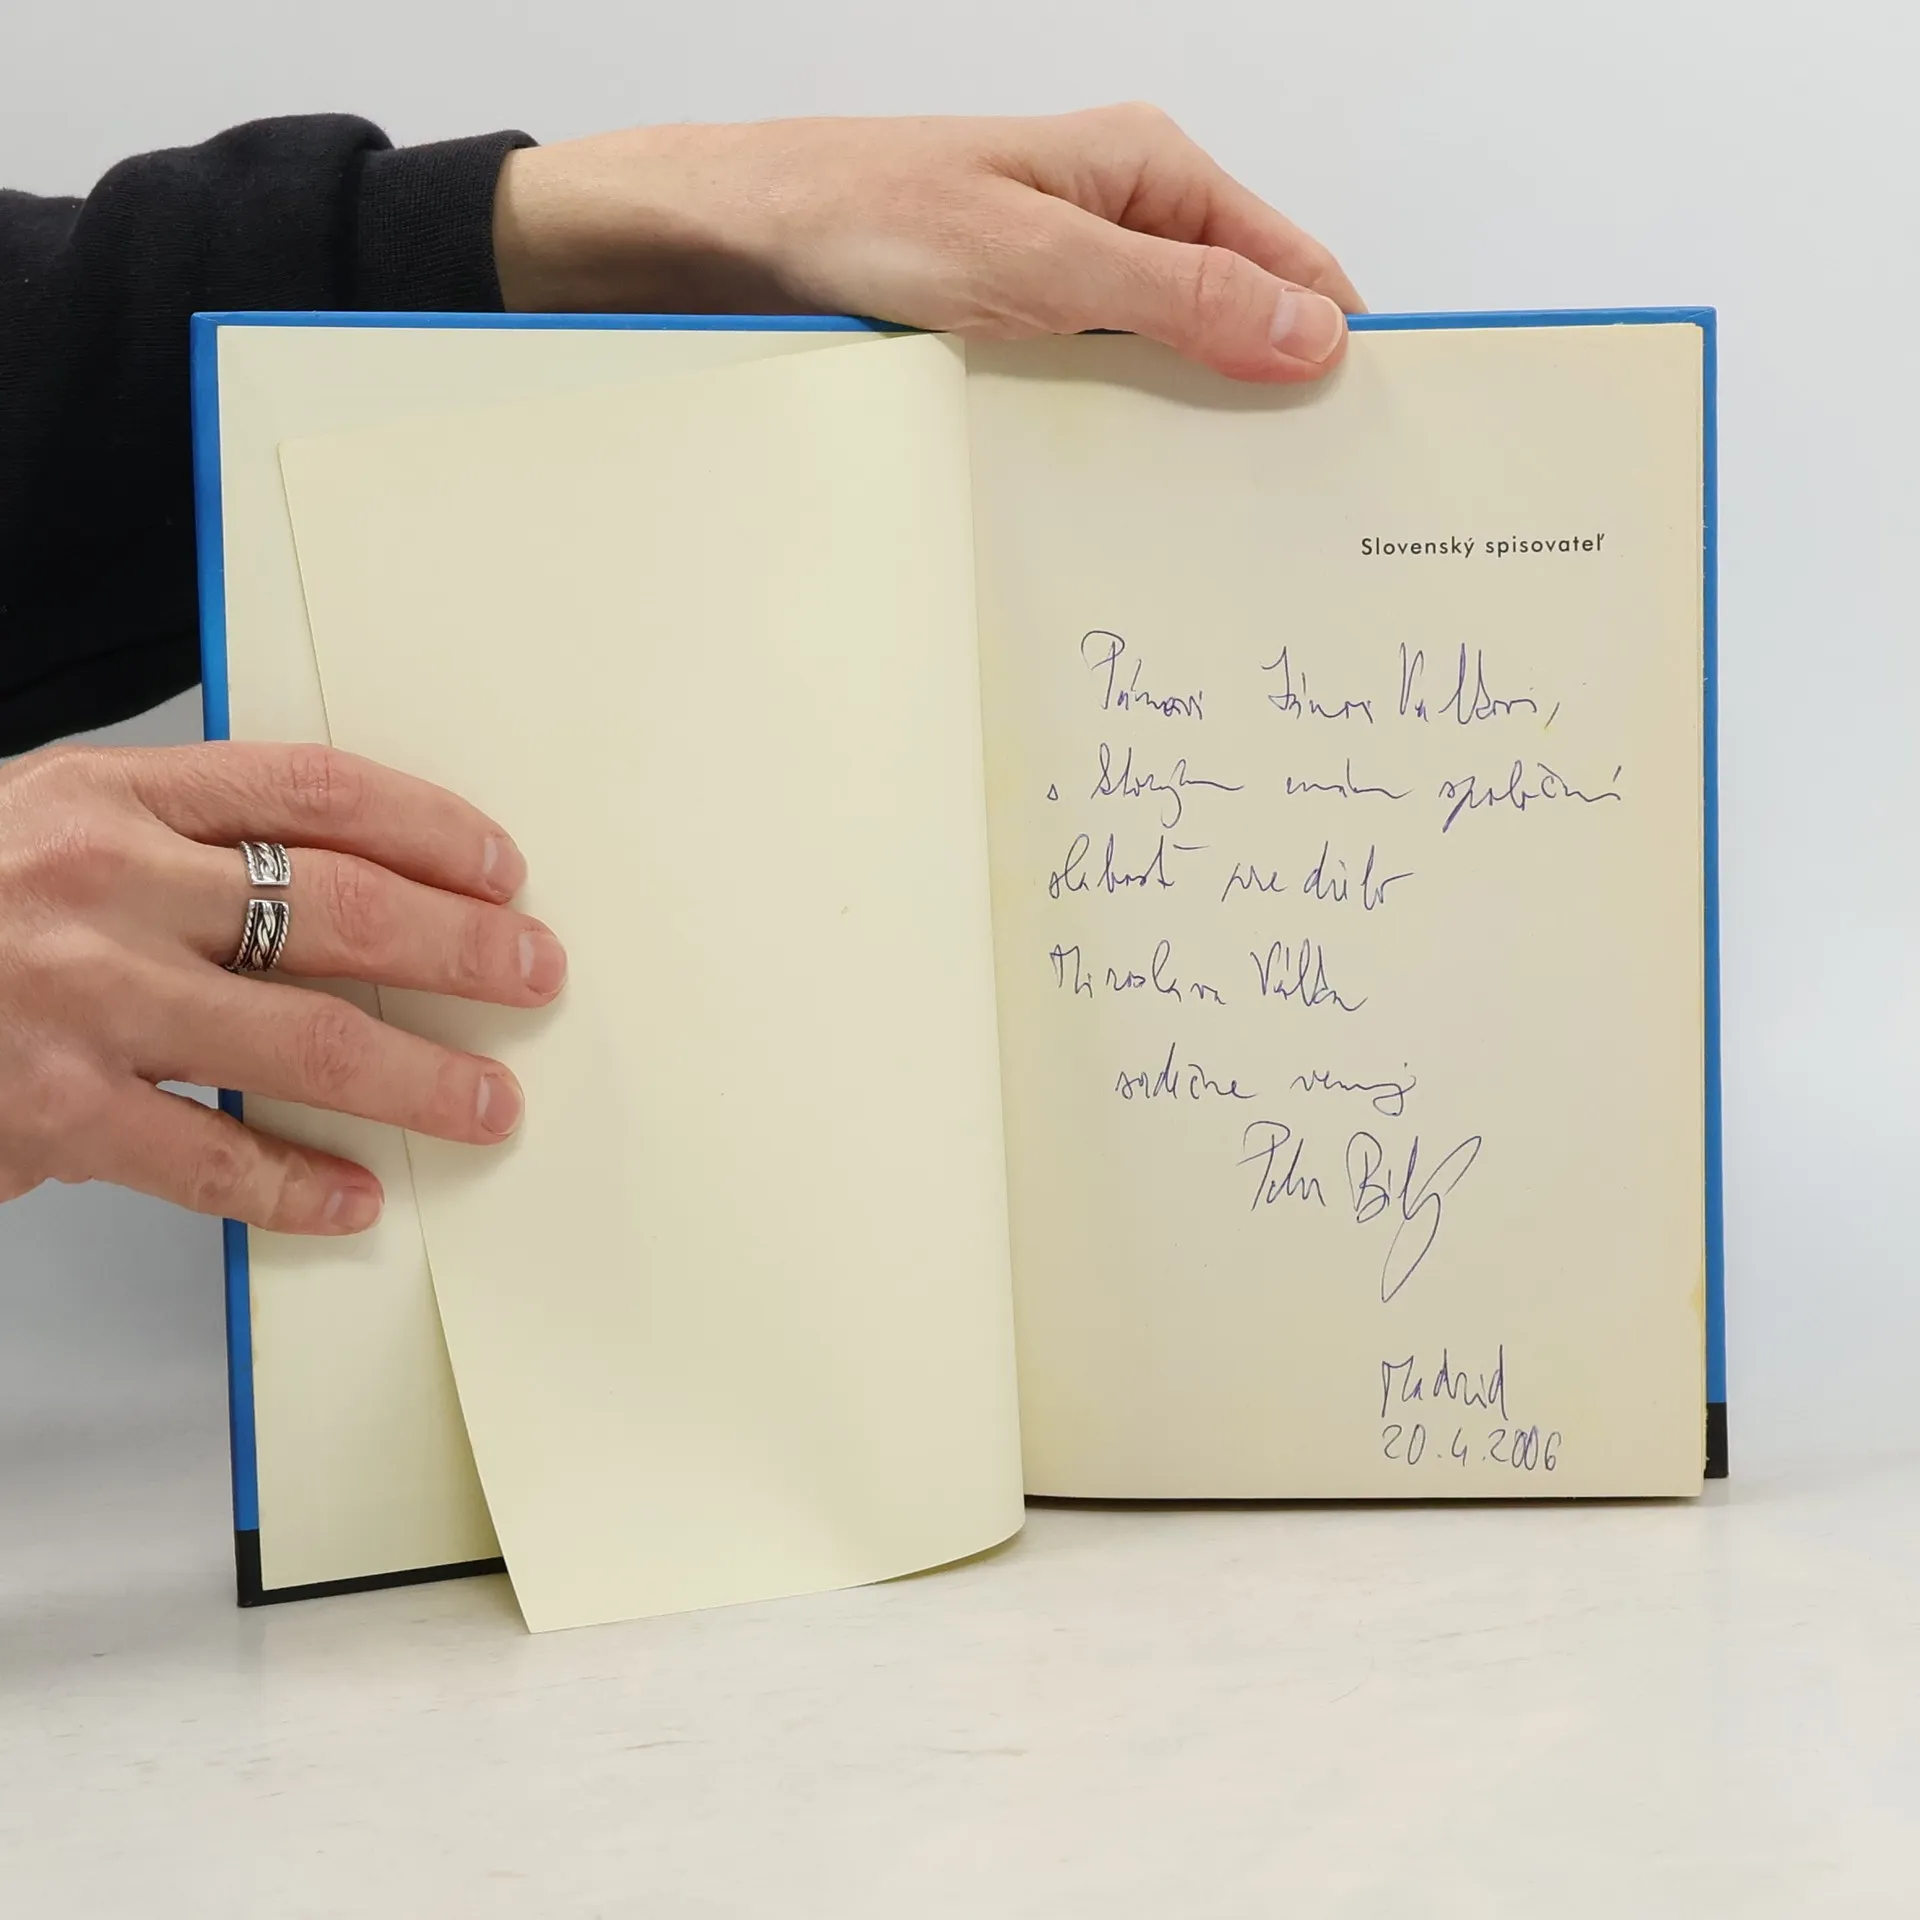 Slovenský spisovateľ
Pánovi Jánovi Valkovi,
s ktorým mám spoločnú
slabosť pre dielo
Miroslava Válka
srdečne venuj
Peter Bilý
Madrid
20.4.2006